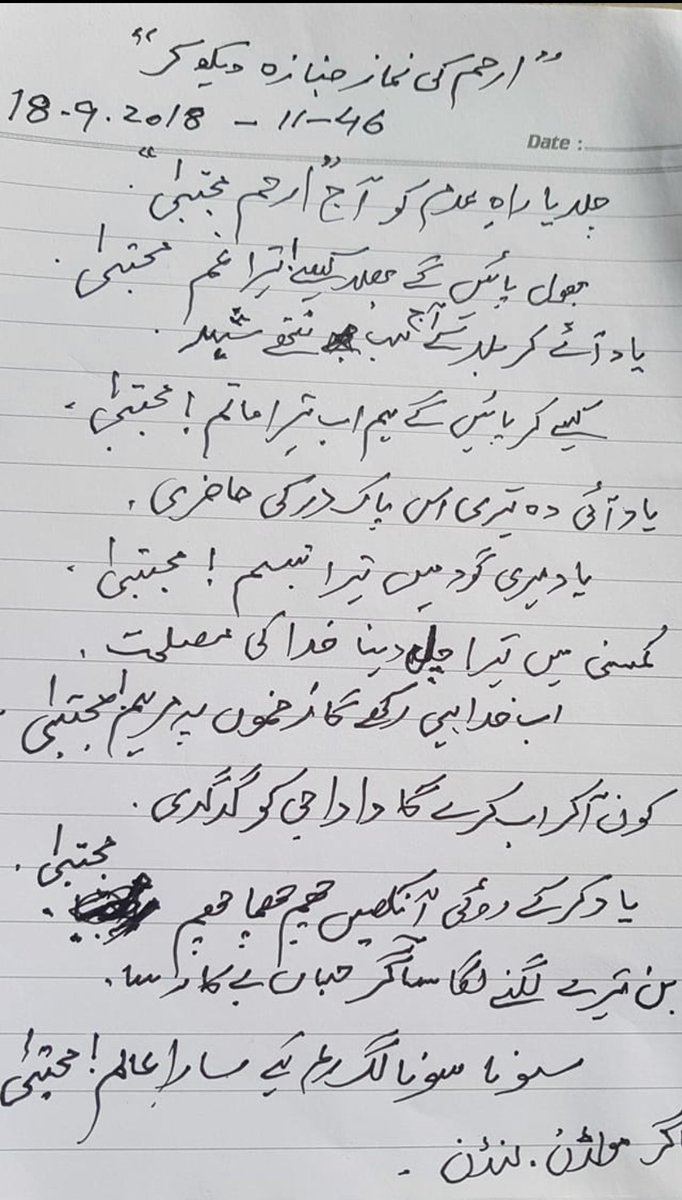 ”ارحم کی نماز جنازہ دیکھ کر“
18.9.2018 - 11-46
Date :
چلدیا راہِ عدم کو آج ”ارحم مجتبیٰ“.
بھول پائیں گے بھلا کیسے! تیرا غم مجتبیٰ.
یاد آئے کربلا کے آج سب ننھے شہید.
کیسے کر پائیں گے ہم اب تیرا ماتم! مجتبیٰ.
یاد آئی وہ تیری اس پاک در کی حاضری.
یاد میری گود میں تیرا تبسم! مجتبیٰ.
کمسنی میں تیرا چل دینا خدا کی مصلحت.
اب خدا ہی رکھے گا زخموں پہ مرہم! مجتبیٰ.
کون آ کر اب کرے گا دادا جی کو گدگدی.
یاد کر کے روئی آنکھیں چھم چھما چھم مجتبیٰ.
بن تیرے لگنے لگا ساگر جہاں بےکار سا.
سونا سونا لگ رہا ہے سارا عالم! مجتبیٰ
مولڈن. لندن.